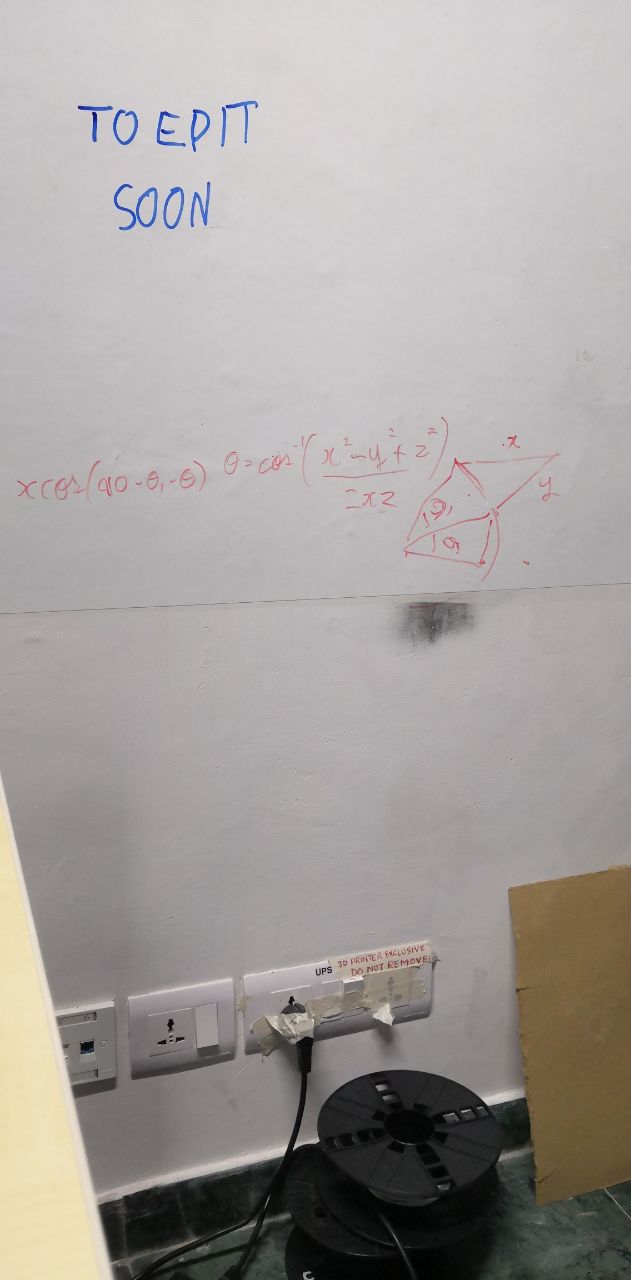 TO EDIT
SOON
x cos(90-θ₁-θ) θ=cos⁻¹(x²-y²+z²/2xz)
x
y
θ₁
θ
UPS
3D PRINTER EXCLUSIVE
DO NOT REMOVE!